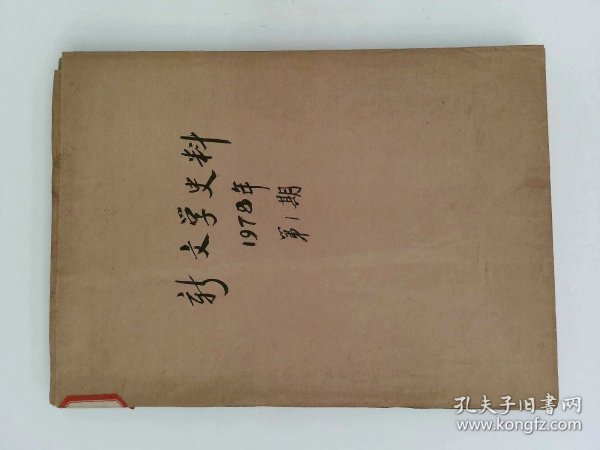 新文学史料
1978年
第1期
孔夫子旧书网
www.kongfz.com